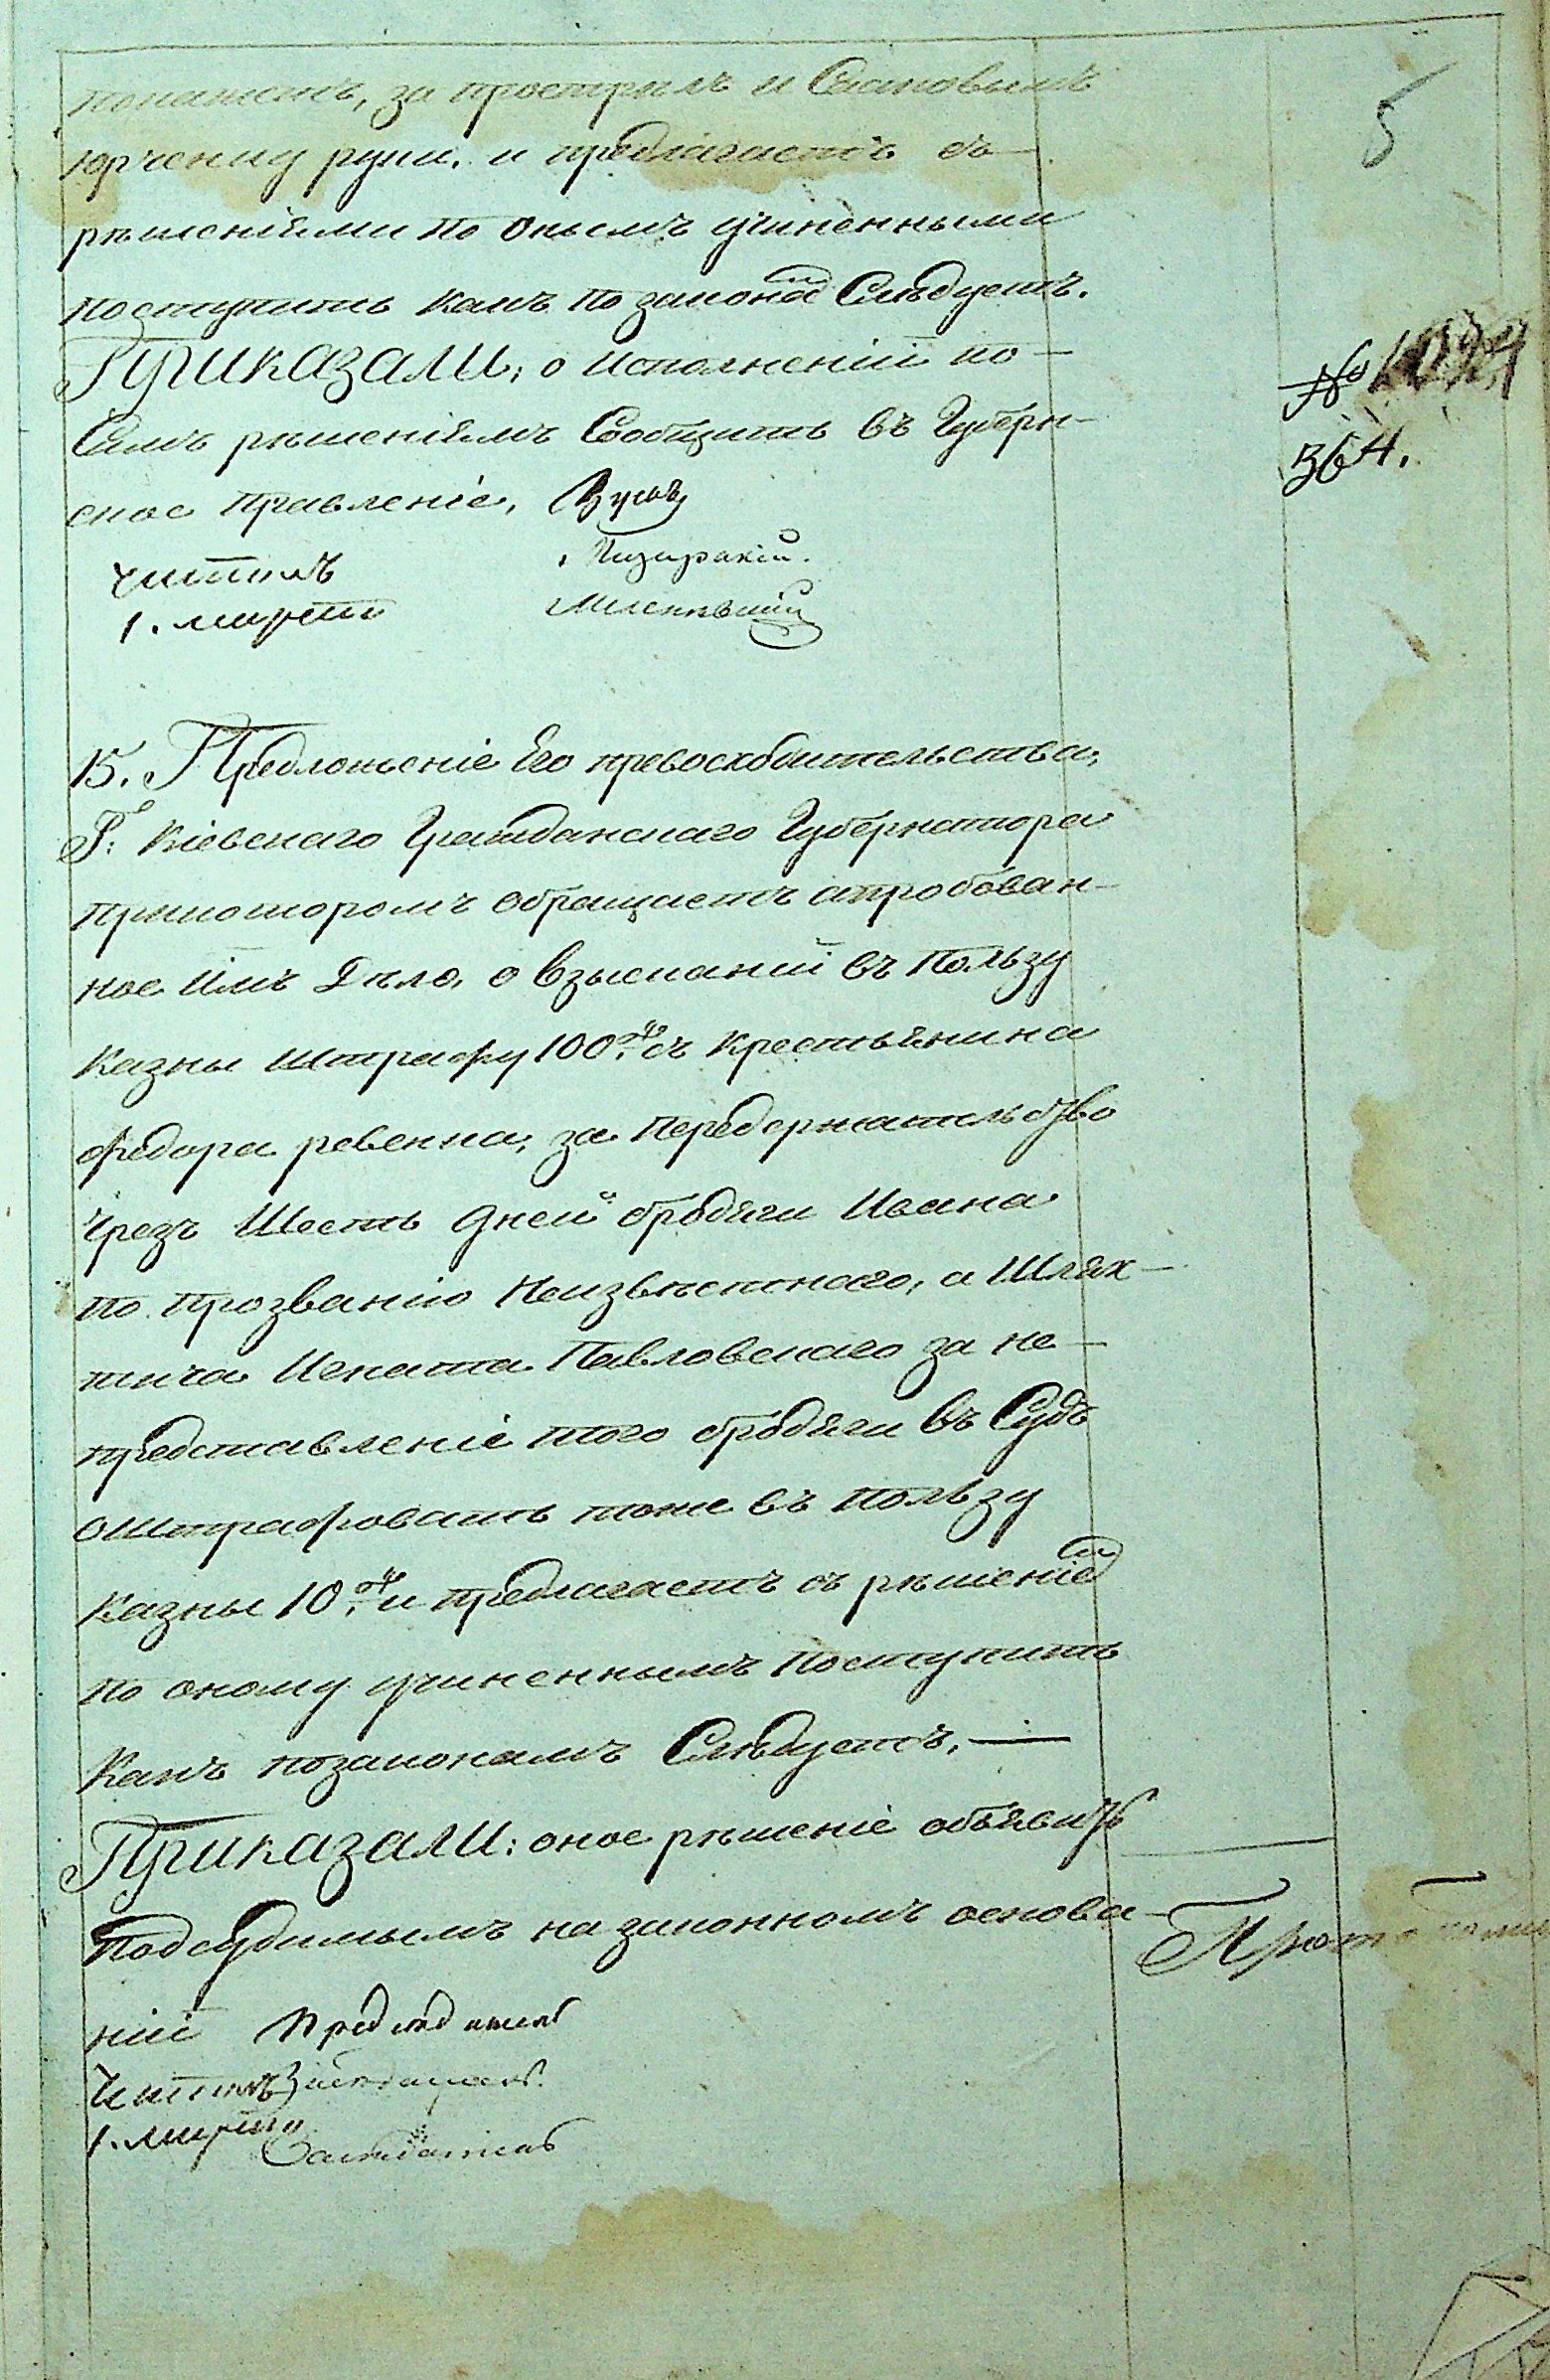 5
за прострѣлъ и Становымъ
руки. и предлагаетъ съ
рѣшеніями по онымъ учиненными
поступить какъ по законамъ Слѣдуетъ.
Приказали, о исполненіи по
Симъ рѣшеніямъ Сообщить въ Губерн-
ское правленіе,
№
364.
читалъ
1. марта
15. Предложеніе Его превосходительства,
Г: Кіевскаго Гражданскаго Губернатора
прикоторомъ обращаетъ апробован-
ное имъ Дѣло, о взысканіи въ пользу
казны штрафу 100 р. съ крестьянина
федора ревенка, за передержательство
чрезъ Шесть дней бродяги Ивана
по прозванію Неизвѣстнаго, а Шлях-
тича Игната Павловскаго за не-
представленіе того бродяги въ Судъ
оштрафовать тоже въ пользу
казны 10 р. и предлагаетъ съ рѣшеніем
по оному учиненнымъ поступить
какъ позаконамъ Слѣдуетъ.
Приказали: оное рѣшеніе объявить
Подсудимымъ на законномъ основа-
ніи Предсѣдатель
Читалъ Засѣдатель
1. марта
Засѣдатель